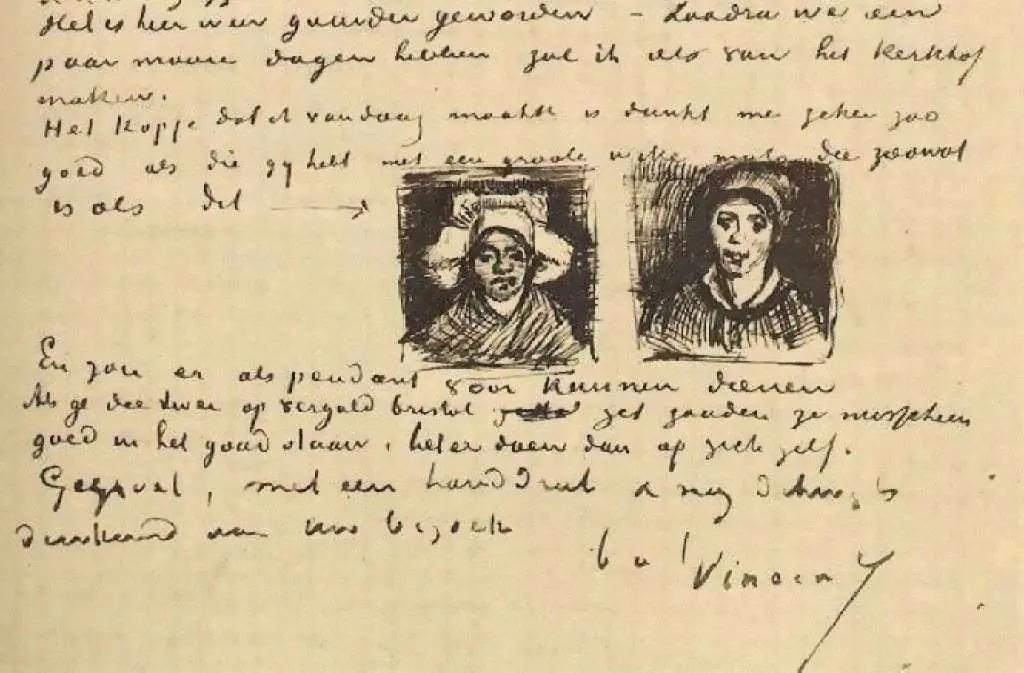 Het is hier weer guurder geworden – Zoodra we een
paar mooie dagen hebben zal ik iets van het Kerkhof
maken.
Het Kopje dat ik vandaag maakte is dunkt me zeker zoo
goed als die gij hebt met een groote witte muts, die zoowat
is als dit
En zou er als pendant voor kunnen dienen
Als ge die twee op verguld bristol zet zouden ze misschien
goed in het goud staan, beter doen dan op zich zelf.
Gegroet, met een handdruk & nog
van Uw bezoek
b a t Vincent